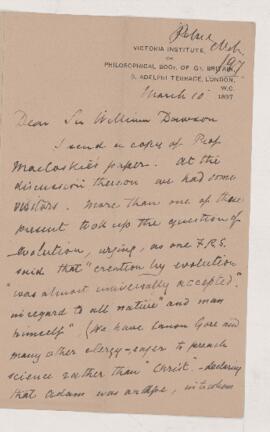 VICTORIA INSTITUTE,
OR
PHILOSOPHICAL SOCY. OF GT. BRITAIN,
ADELPHI TERRACE, LONDON,
W.C.
March 10 1897
Dear Sir William Dawson
I send a copy of Prof
Macloskie's paper. At the
discussion thereon we had some
visitors. More than one of those
present took up the question of
Evolution, urging, as one F.R.S.
said that "creation by evolution
"was almost universally accepted"
"in regard to all nature" and man
himself". (We have Canon Gore and
many other clergy – eager to preach
science rather than "Christ" – declaring
that Adam was an ape, into whom